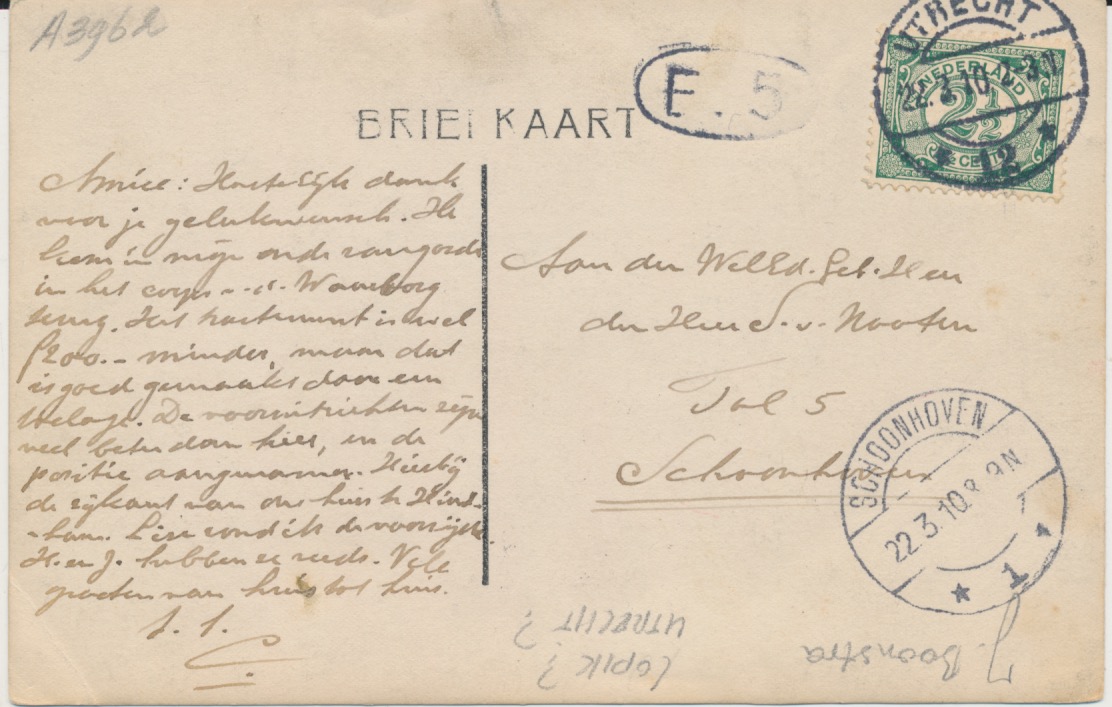 A396d
BRIEFKAART
E. 5
UTRECHT
22.3.10
12
NEDERLAND
2½
CENT
Amice: Hartelijk dank
voor je gelukwensch. Ik
kom in mijn oude rangorde
in het corps Waarborg
terug. Het is wel
f200.- minder, maar dat
is goed gemaakt door een
toelage. De vooruitzichten zijn
veel beter dan hier, en de
positie aangenamer. Hierbij
de zijkant van ons huis te
Lise zond ik de voorzijde.
H. en J. hebben ze reeds. Vele
groeten van huis tot huis.
t. t.
C.
Aan den WelEd. Geb. Heer
den Heer S. v. Nooten
Tol 5
Schoonhoven
SCHOONHOVEN
22.3.10.8-9N
1
J. Boonstra
LOPIK?
UTRECHT?